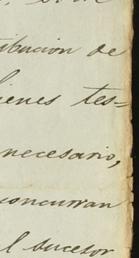 tibucion de
ienes tes-
necesario,
concurran
l sucesor